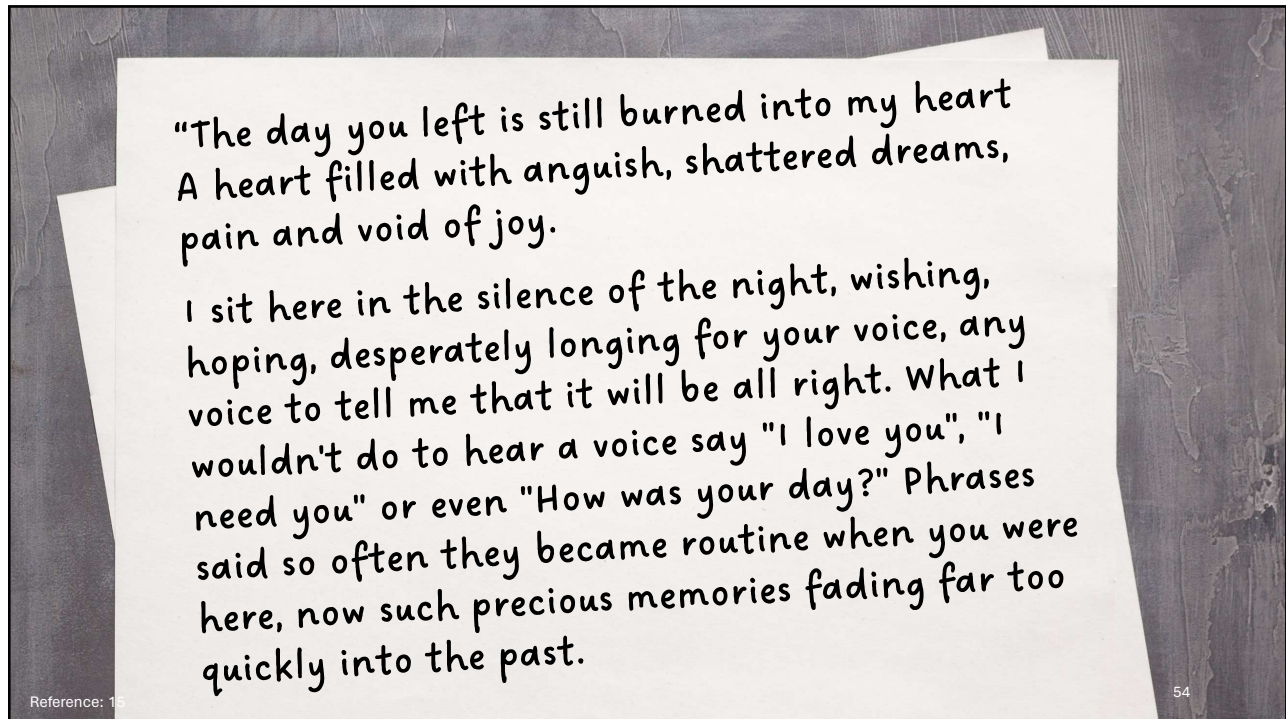 “The day you left is still burned into my heart
A heart filled with anguish, shattered dreams,
pain and void of joy.
I sit here in the silence of the night, wishing,
hoping, desperately longing for your voice, any
voice to tell me that it will be all right. What I
wouldn't do to hear a voice say "I love you", "I
need you" or even "How was your day?" Phrases
said so often they became routine when you were
here, now such precious memories fading far too
quickly into the past.
Reference: 15
54